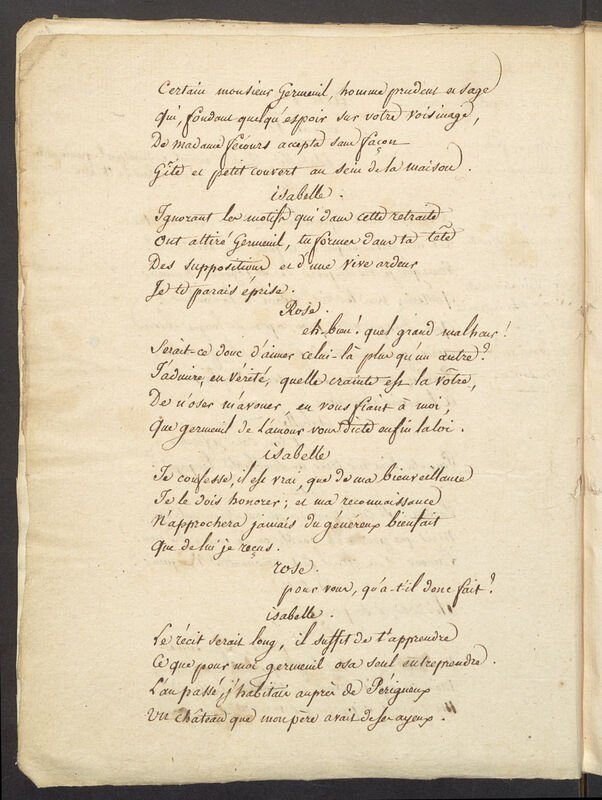 Certain monsieur Germeuil, homme prudent et sage
Qui, fondant quelqu'espoir sur votre voisinage,
De Madame fécours accepta sans façon
Gîte et petit couvert au sein de la maison.
isabelle.
Ignorant les motifs qui dans cette retraite
Ont attiré Germeuil, tu formes dans ta tête
Des suppositions et d'une vive ardeur
Je te parais éprise.
Rose.
eh bien! quel grand malheur!
Serait-ce donc d'aimer celui-là plus qu'un autre?
J'admire, en vérité, quelle crainte est la vôtre,
De n'oser m'avouer, en vous fiant à moi,
Que germeuil de L'amour vous dicte enfin la loi.
isabelle
Je confesse, il est vrai, que de ma bienveillance
Je le dois honorer; et ma reconnaissance
N'approchera jamais du généreux bienfait
Que de lui je reçus.
rose.
pour vous, qu'a-t'il donc fait?
isabelle.
Le récit serait long, il suffit de t'apprendre
Ce que pour moi germeuil osa seul entreprendre.
L'an passé, j'habitais auprès de Périgueux
Un château que mon père avait de ses ayeux.